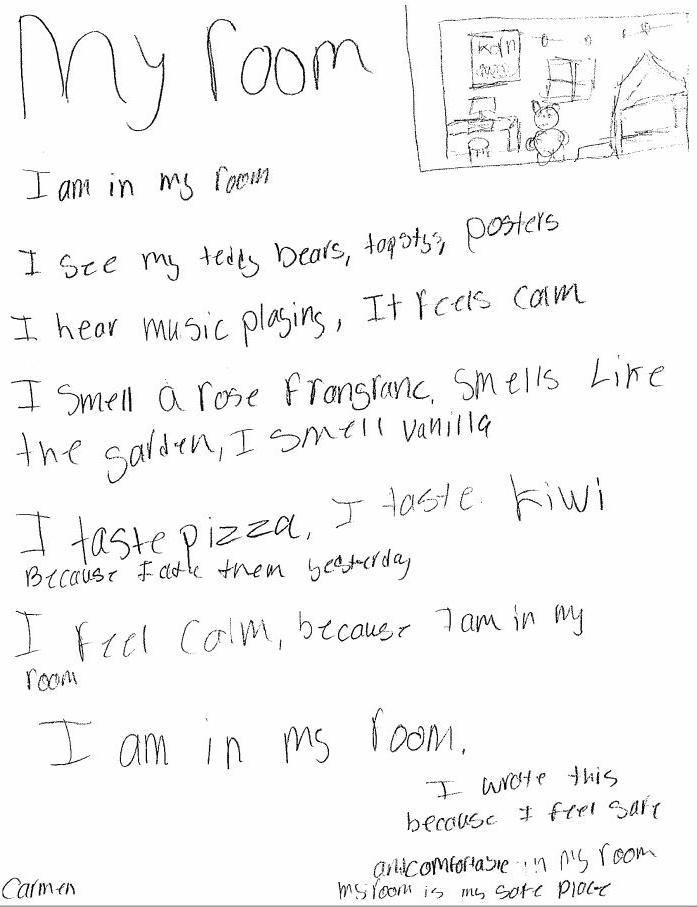 My room
I am in my room
I see my teddy bears, posters
I hear music playing, It feels calm
I smell a rose frangranc. smells Like
the garden, I smell vanilla
I taste pizza, I taste kiwi
Because I ate them yeasterday
I feel Calm, because I am in my
room
I am in my room.
I wrote this
because I feel safe
and comfortable in my room
my room is my safe place
Carmen